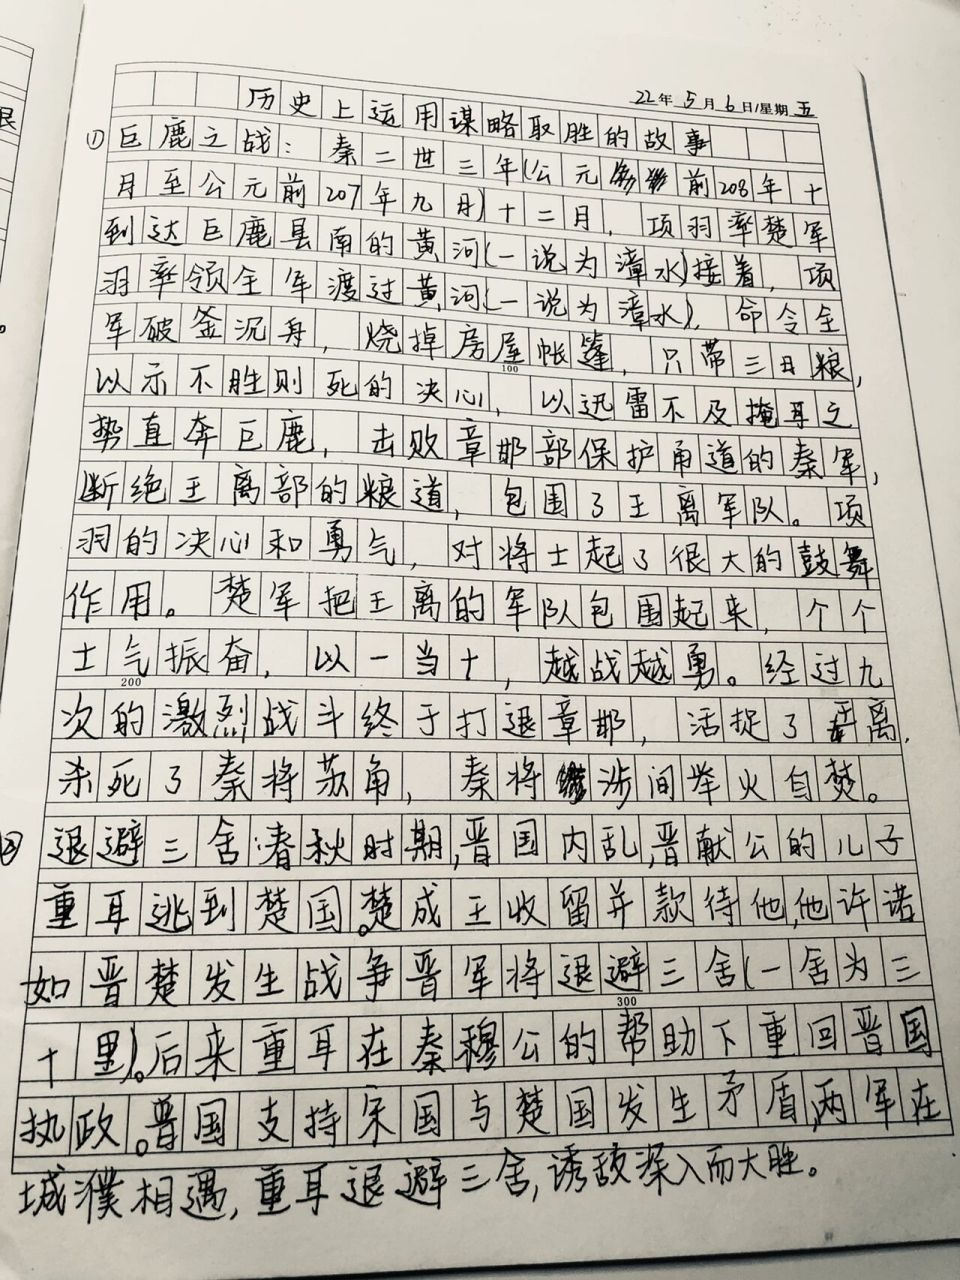 22年5月6日/星期五
历史上运用谋略取胜的故事
①巨鹿之战：秦二世三年(公元前208年十
月至公元前207年九月)十二月，项羽率楚军
到达巨鹿县南的黄河(一说为漳水)接着，项
羽率领全军渡过黄河(一说为漳水)，命令全
军破釜沉舟，烧掉房屋帐篷，只带三日粮，
100
以示不胜则死的决心，以迅雷不及掩耳之
势直奔巨鹿，击败章邯部保护甬道的秦军，
断绝王离部的粮道，包围了王离军队。项
羽的决心和勇气，对将士起了很大的鼓舞
作用。楚军把王离的军队包围起来，个个
士气振奋，以一当十，越战越勇。经过九
200
次的激烈战斗终于打退章邯，活捉了王离，
杀死了秦将苏角，秦将涉间举火自焚。
②退避三舍:春秋时期,晋国内乱,晋献公的儿子
重耳逃到楚国。楚成王收留并款待他,他许诺
如晋楚发生战争晋军将退避三舍(一舍为三
300
十里)。后来重耳在秦穆公的帮助下重回晋国
执政。晋国支持宋国与楚国发生矛盾,两军在
城濮相遇,重耳退避三舍,诱敌深入而大胜。